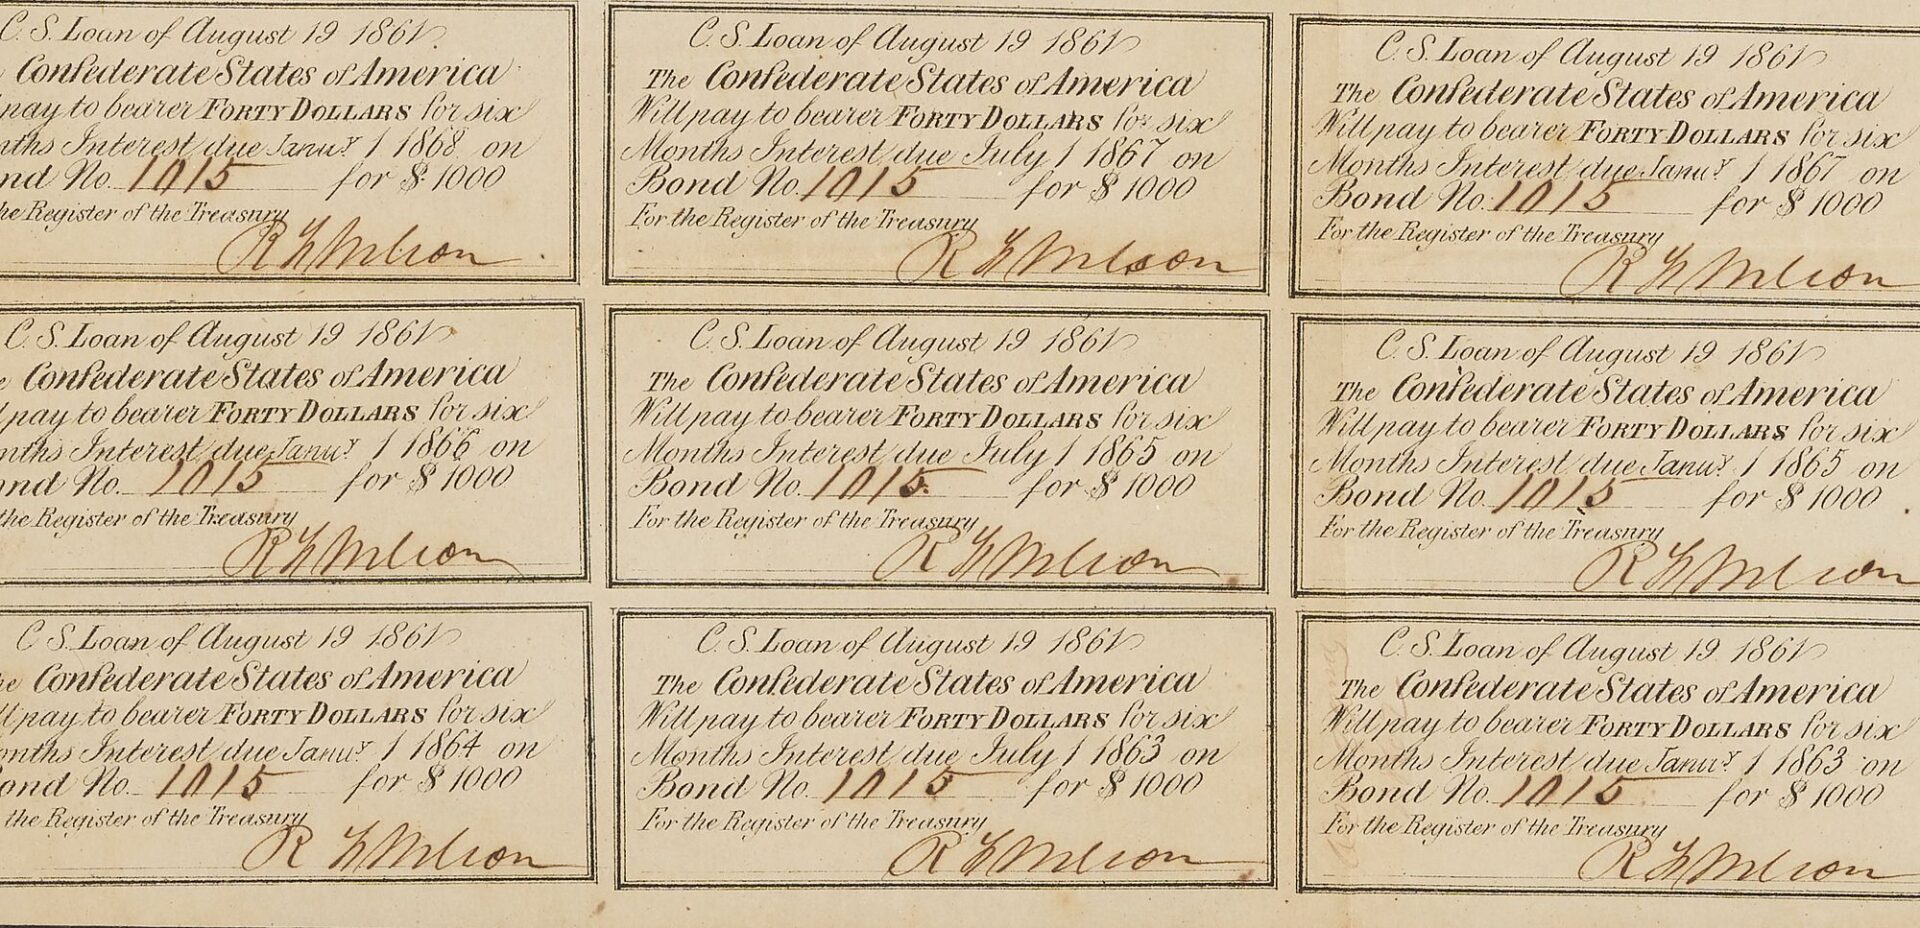 C. S. Loan of August 19 1861.
Confederate States of America
pay to bearer FORTY DOLLARS for six
Interest due Janu.y 1 1868 on
No. 1015 for $ 1000
Register of the Treasury
C. S. Loan of August 19 1861
The Confederate States of America
Will pay to bearer FORTY DOLLARS for six
Months Interest due July 1 1867 on
Bond No. 1015 for $ 1000
For the Register of the Treasury
C. S. Loan of August 19 1861
The Confederate States of America
Will pay to bearer FORTY DOLLARS for six
Months Interest due Janu.y 1 1867 on
Bond No. 1015 for $ 1000
For the Register of the Treasury
C. S. Loan of August 19 1861
Confederate States of America
pay to bearer FORTY DOLLARS for six
Interest due Janu.y 1 1866 on
No. 1015 for $ 1000
the Register of the Treasury
C. S. Loan of August 19 1861
The Confederate States of America
Will pay to bearer FORTY DOLLARS for six
Months Interest due July 1 1865 on
Bond No. 1015 for $ 1000
For the Register of the Treasury
C. S. Loan of August 19 1861
The Confederate States of America
Will pay to bearer FORTY DOLLARS for six
Months Interest due Janu.y 1 1865 on
Bond No. 1015 for $ 1000
For the Register of the Treasury
C. S. Loan of August 19 1861
Confederate States of America
pay to bearer FORTY DOLLARS for six
Interest due Janu.y 1 1864 on
No. 1015 for $ 1000
the Register of the Treasury
C. S. Loan of August 19 1861
The Confederate States of America
Will pay to bearer FORTY DOLLARS for six
Months Interest due July 1 1863 on
Bond No. 1015 for $ 1000
For the Register of the Treasury
C. S. Loan of August 19 1861
The Confederate States of America
Will pay to bearer FORTY DOLLARS for six
Months Interest due Janu.y 1 1863 on
Bond No. 1015 for $ 1000
For the Register of the Treasury